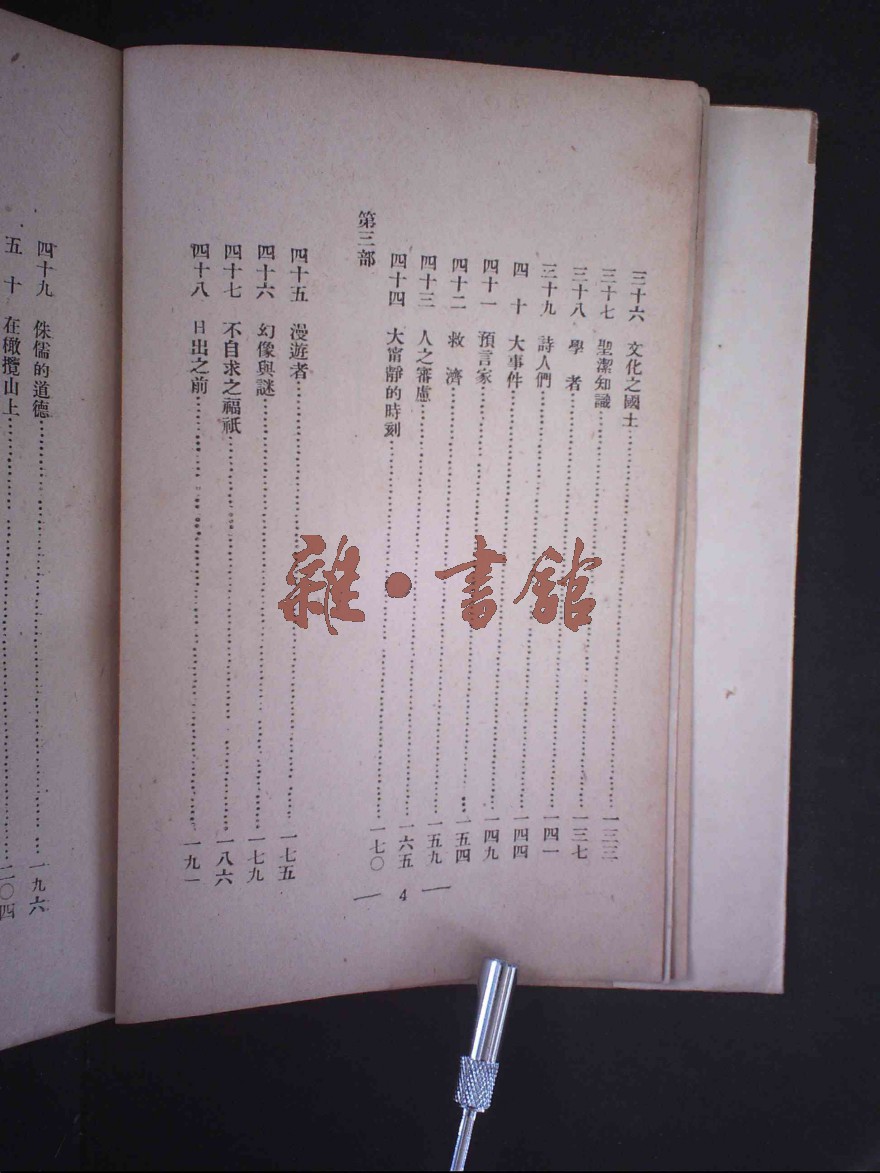 三十六 文化之國土 一三三
三十七 聖潔知識 一三七
三十八 學者 一四一
三十九 詩人們 一四四
四十 大事件 一四九
四十一 預言家 一五四
四十二 救濟 一五九
四十三 人之審慮 一六五
四十四 大甯靜的時刻 一七〇
第三部
四十五 漫遊者 一七五
四十六 幻像與謎 一七九
四十七 不自求之福祇 一八六
四十八 日出之前 一九一
— 4 —
四十九 侏儒的道德 一九六
五十 在橄攬山上 二〇四
雜·書館